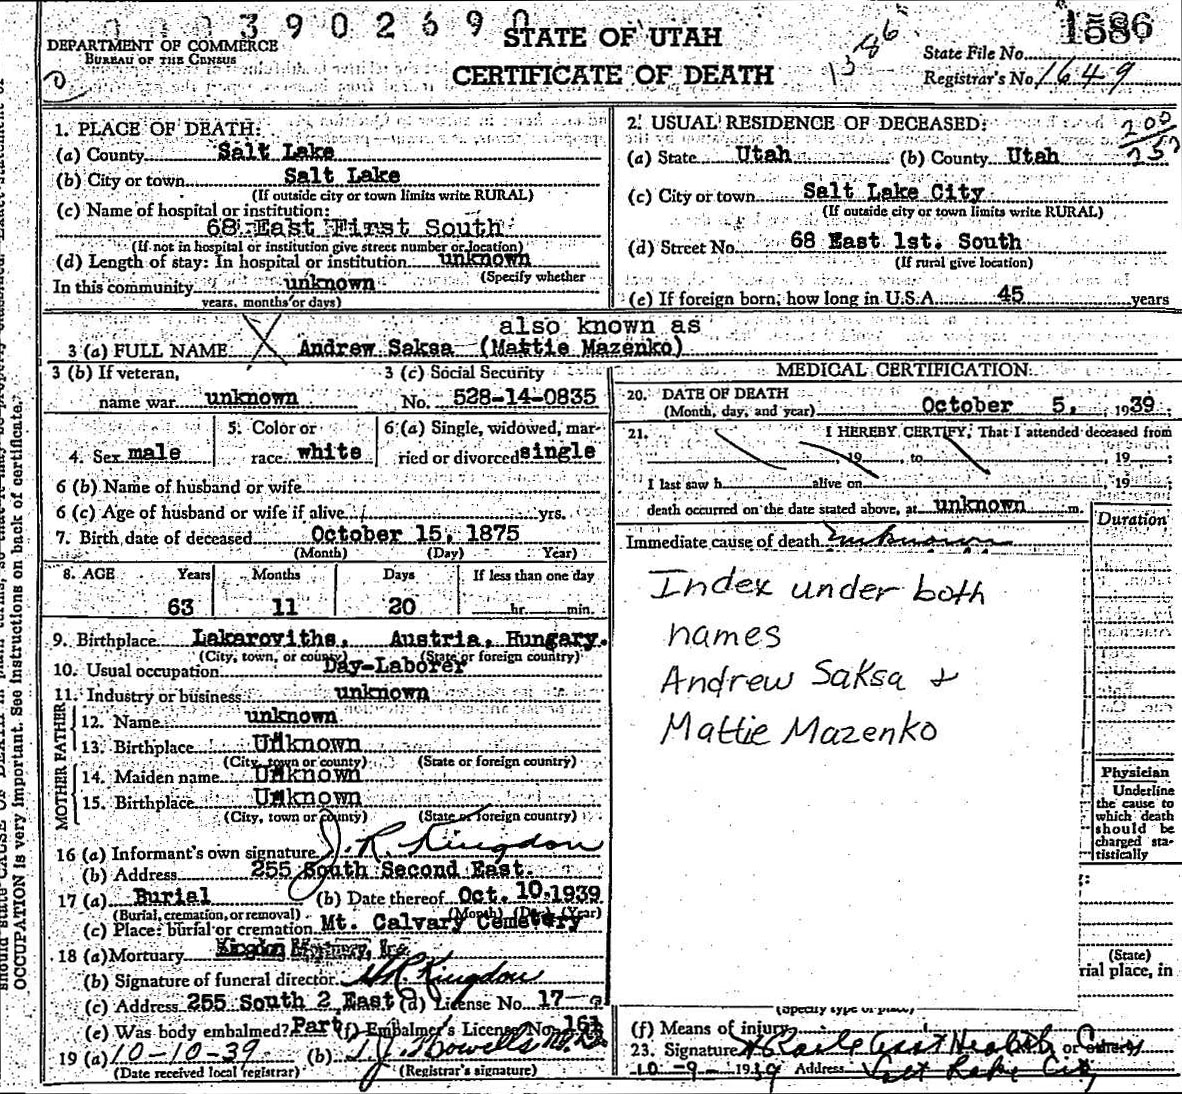 0003902690
1586
DEPARTMENT OF COMMERCE
BUREAU OF THE CENSUS
STATE OF UTAH
CERTIFICATE OF DEATH
1386
State File No.
Registrar's No. 1649
1. PLACE OF DEATH:
(a) County Salt Lake
(b) City or town Salt Lake
(If outside city or town limits write RURAL)
(c) Name of hospital or institution:
68 East First South
(If not in hospital or institution give street number or location)
(d) Length of stay: In hospital or institution unknown
(Specify whether
In this community unknown
years, months or days)
2. USUAL RESIDENCE OF DECEASED:
200
(a) State Utah (b) County Utah
(c) City or town Salt Lake City
(If outside city or town limits write RURAL)
(d) Street No. 68 East 1st. South
(If rural give location)
(e) If foreign born, how long in U.S.A. 45 years
also known as
3 (a) FULL NAME X Andrew Saksa (Mattie Mazenko)
3 (b) If veteran, 3 (c) Social Security
name war unknown No. 528-14-0835
4. Sex male
5. Color or
race white
6 (a) Single, widowed, mar-
ried or divorced single
6 (b) Name of husband or wife
6 (c) Age of husband or wife if alive yrs.
7. Birth date of deceased October 15, 1875
(Month) (Day) Year)
8. AGE Years Months Days If less than one day
63 11 20 hr. min.
9. Birthplace Lakaroviths, Austria, Hungary.
(City, town, or county) (State or foreign country)
10. Usual occupation Day-Laborer
11. Industry or business unknown
FATHER
12. Name unknown
13. Birthplace Unknown
(City, town or county) (State or foreign country)
MOTHER
14. Maiden name Unknown
15. Birthplace Unknown
(City, town or county) (State or foreign country)
16 (a) Informant's own signature J. R. Kingdon
(b) Address 255 South Second East.
17 (a) Burial (b) Date thereof Oct. 10.1939
(Burial, cremation, or removal) (Month) (Day) (Year)
(c) Place: burial or cremation Mt. Calvary Cemetery
18 (a) Mortuary Kingdon Mortuary, Inc
(b) Signature of funeral director Kingdon
(c) Address 255 South 2 East (d) License No. 17
(e) Was body embalmed? Part (f) Embalmer's License No. 161
19 (a) 10-10-39 (b) T. J. Howells M.D.
(Date received local registrar) (Registrar's signature)
MEDICAL CERTIFICATION
20. DATE OF DEATH
(Month, day, and year) October 5, 1939
21. I HEREBY CERTIFY, That I attended deceased from
, 19 , to , 19 ;
I last saw h alive on , 19 ;
death occurred on the date stated above, at unknown m.
Duration
Immediate cause of death unknown
Index under both
names
Andrew Saksa &
Mattie Mazenko
Physician
Underline
the cause to
which death
should be
charged sta-
tistically
(State)
rial place, in
(Specify type of place)
(f) Means of injury
23. Signature or
10-9-1939 Address Salt Lake City
OCCUPATION is very important. See instructions on back of certificate.